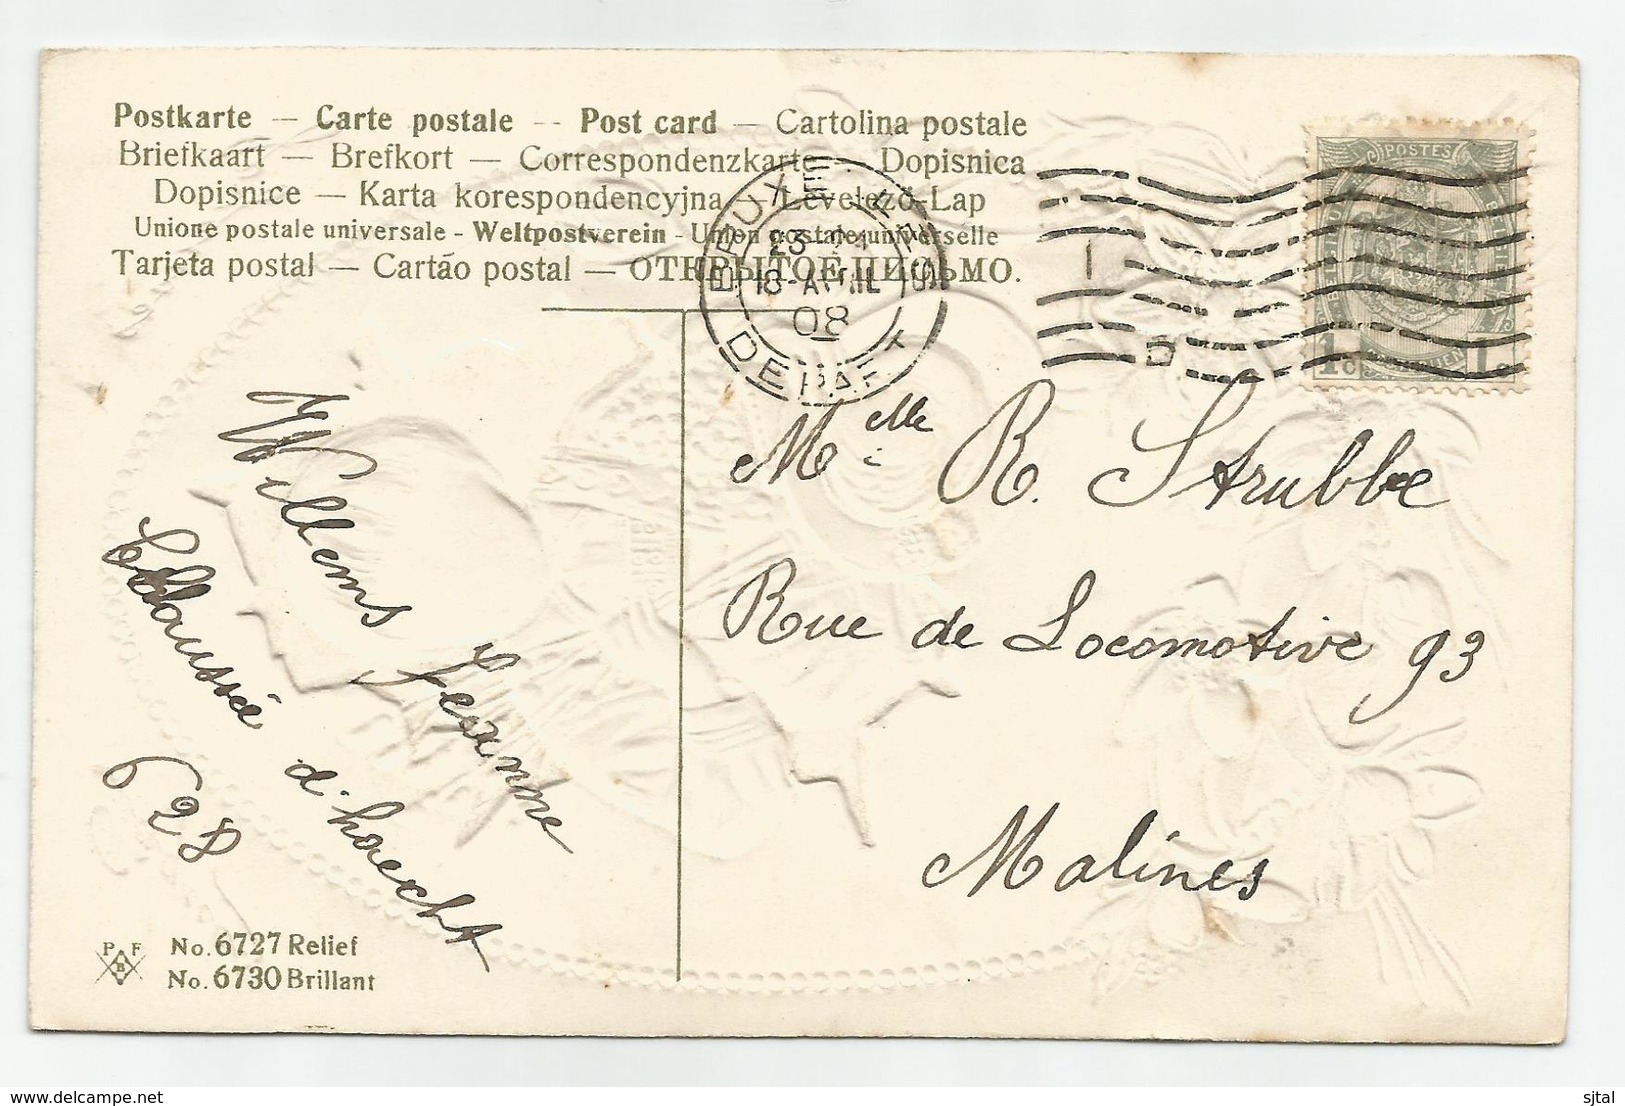 Postkarte — Carte postale -- Post card — Cartolina postale
Briefkaart — Brefkort — Correspondenzkarte — Dopisnica
Dopisnice — Karta korespondencyjna — Levelező-Lap
Unione postale universale - Weltpostverein - Union postale universelle
Tarjeta postal — Cartão postal — ОТКРЫТОЕ ПИСЬМО.
BRUXELLES
23
18-AVRIL
08
DEPART
POSTES
1c 1c
Mlle R. Strubbe
Rue de Locomotive 93
Malines
Willems Jeanne
Chaussée d'haecht
628
P F
B
No. 6727 Relief
No. 6730 Brillant
www.delcampe.net
sjtal